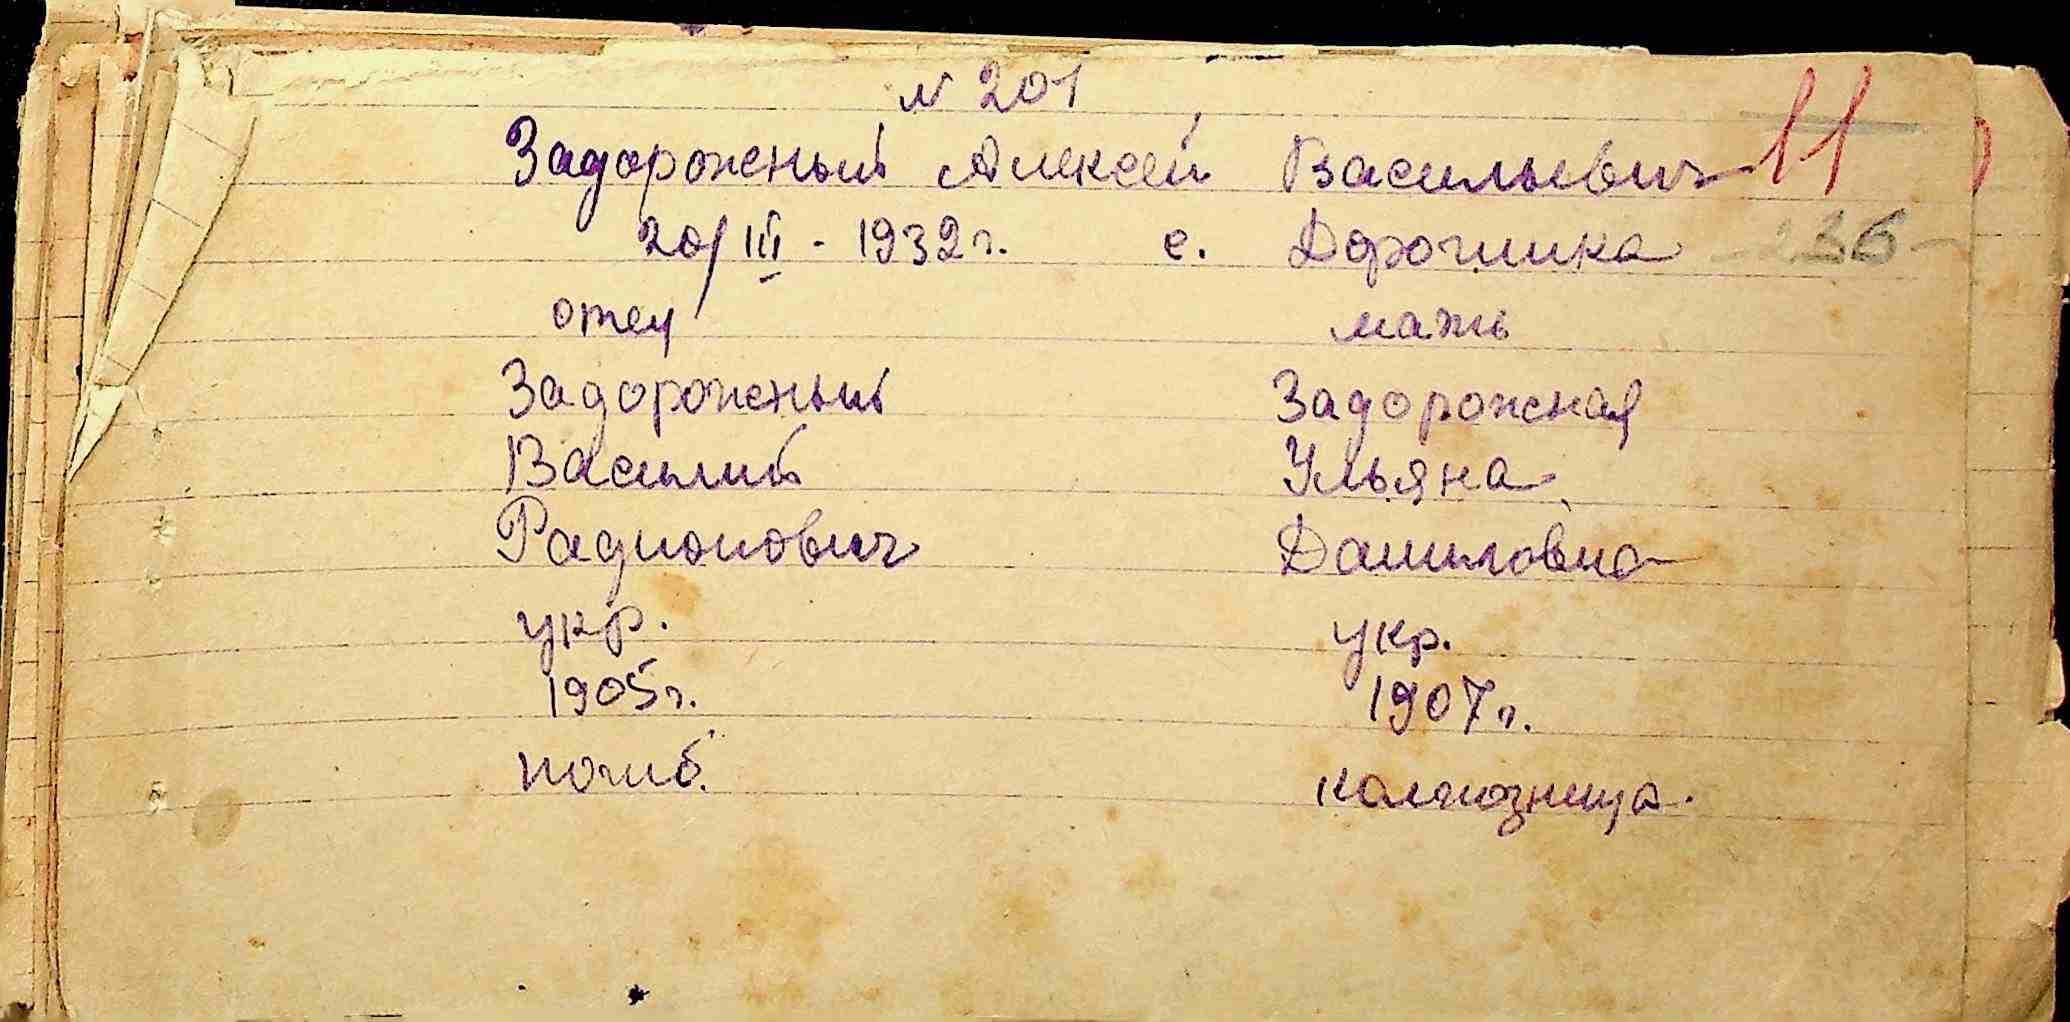 № 201
Задорожный Алексей Васильевич 11
20/III - 1932 г. с. Дорогинка 136
отец мать
Задорожный Задорожная
Василий Ульяна
Радионович Даниловна
укр. укр.
1905 г. 1907 г.
погиб. колхозница.